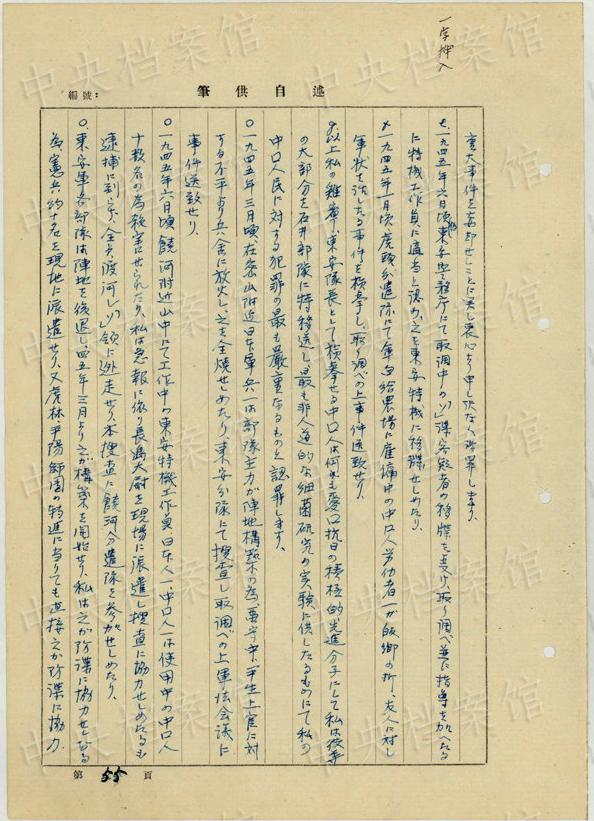 一字押入
筆供自述
編號:
重大事件を せしことに対し衷心より申し訳なく謝罪します。
七、一九四五年六月頃、東安 務庁にて取調中の「ソ」諜容疑者の移牒を受け、取り調べ並に指導を加へたる
に特機工作員に適当と認め、之を東安特機に移牒せしめたり
八、一九四五年一月頃、虎頭分遣隊にて軍自給農場に雇傭中の中国人労仂者一が皈郷の折、友人に対し
軍状を洩したる事件を検挙し、取り調べの上事件送致せり。
以上私の雞寧、東安隊長として検挙せる中国人は何れも愛国抗日の積極的先進分子にして私は彼等
の大部分を石井部隊に特移送し、最も非人道的な細菌研究の実験に供したるものにて私の
中国人民に対する犯罪の最も厳重なるものと認罪します。
〇一九四五年三月頃、在密山附近日本軍兵一は部隊主力が陣地構築の為 中、平生上官に対
する不平より兵舎に放火し、之を全焼せしめたり、東安分隊にて捜査し取調べの上軍法会議に
事件送致せり。
〇一九四五年六月頃饒河附近山中にて工作中の東安特機工作員日本人一、中国人一は使用中の中国人
十数名の為殺害せられたり、私は急報に依り長嶋大尉を現場に派遣し捜査に協力せしめたるも
逮捕に到らず、全員渡河し「ソ」領に逃走せり、本捜査に饒河分遣隊を参加せしめたり、
〇、東安軍各部隊は陣地を後退し、四五年三月より之が構築を開始せり、私は之が防諜に協力せしむる
為憲兵約十名を現地に派遣せり、又虎林平陽師団の移 に当りても直接之が防諜に協力
第 55 頁
中央档案馆